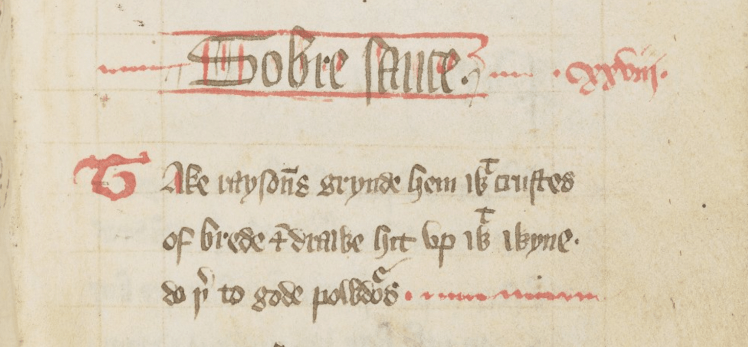 Sobre sauce. .xxviii.
Take raysons̄ grynde hem wᵗ crustes
of brede & drawe hit vp wᵗ wyne.
do þʳ to gode powdoʳs.